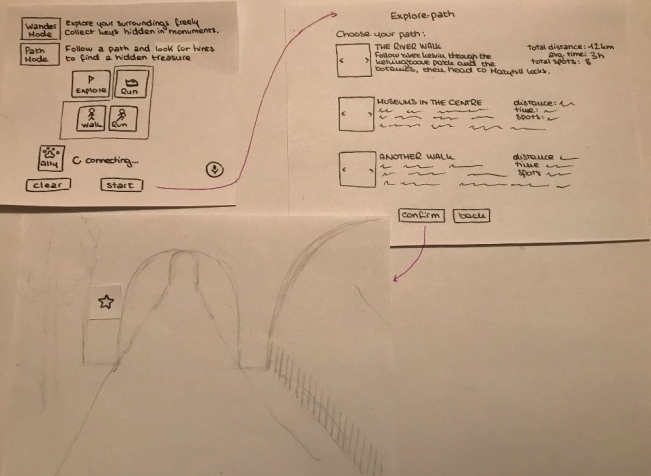 Wander
Mode
Explore your surroundings freely
Collect keys hidden in monuments.
Path
Mode
Follow a path and look for hints
to find a hidden treasure
Explore
Run
Walk
Run
Ally
connecting...
clear
start
Explore-path
Choose your path:
THE RIVER WALK
Follow river kelvin through the
kelvingrove park and the
botanics, then head to Maryhill locks.
Total distance: 12km
avg. time: 3h
total spots: 8
MUSEUMS IN THE CENTRE
distance:
time:
spots:
ANOTHER WALK
distance
time
spots
confirm
back